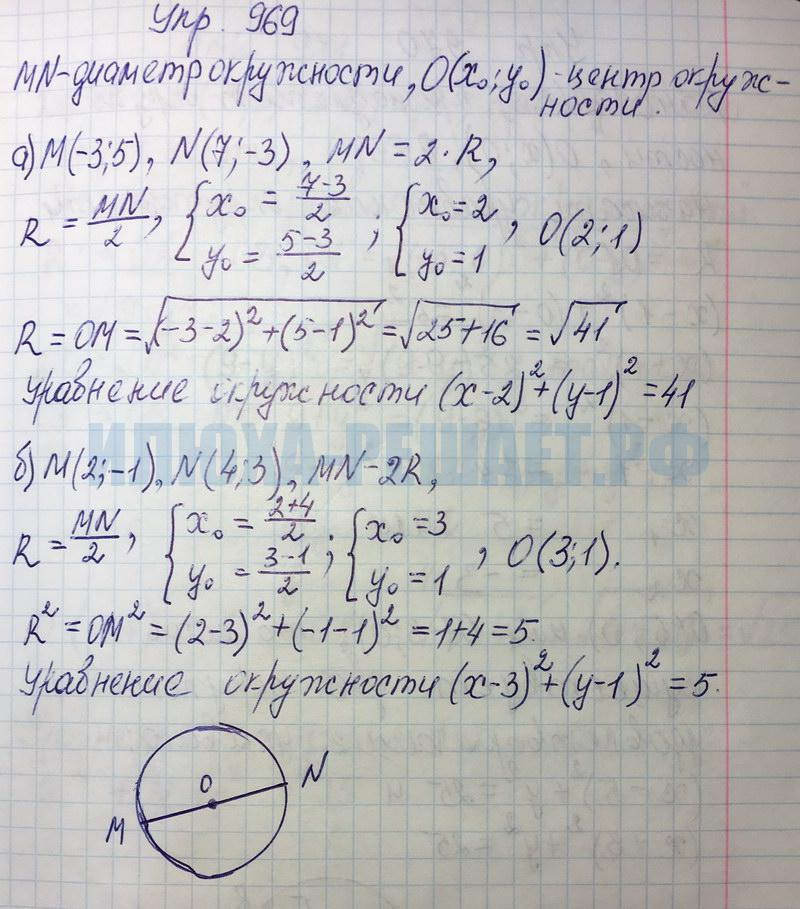 Упр. 969
MN-диаметр окружности, O(x₀; y₀) - центр окруж-
ности.
а) M(-3;5), N(7;-3), MN = 2·R,
R = MN/2, { x₀ = (7-3)/2 ; y₀ = (5-3)/2 ; { x₀=2 y₀=1 , O(2;1)
R = OM = √((-3-2)²+(5-1)²) = √(25+16) = √41
Уравнение окружности (x-2)²+(y-1)²=41
ИЛЮХА-РЕШАЕТ.РФ
б) M(2;-1), N(4;3), MN-2R,
R = MN/2, { x₀ = (2+4)/2 y₀ = (3-1)/2 ; { x₀=3 y₀=1 , O(3;1).
R² = OM² = (2-3)²+(-1-1)² = 1+4=5.
Уравнение окружности (x-3)²+(y-1)² = 5.
O
N
M